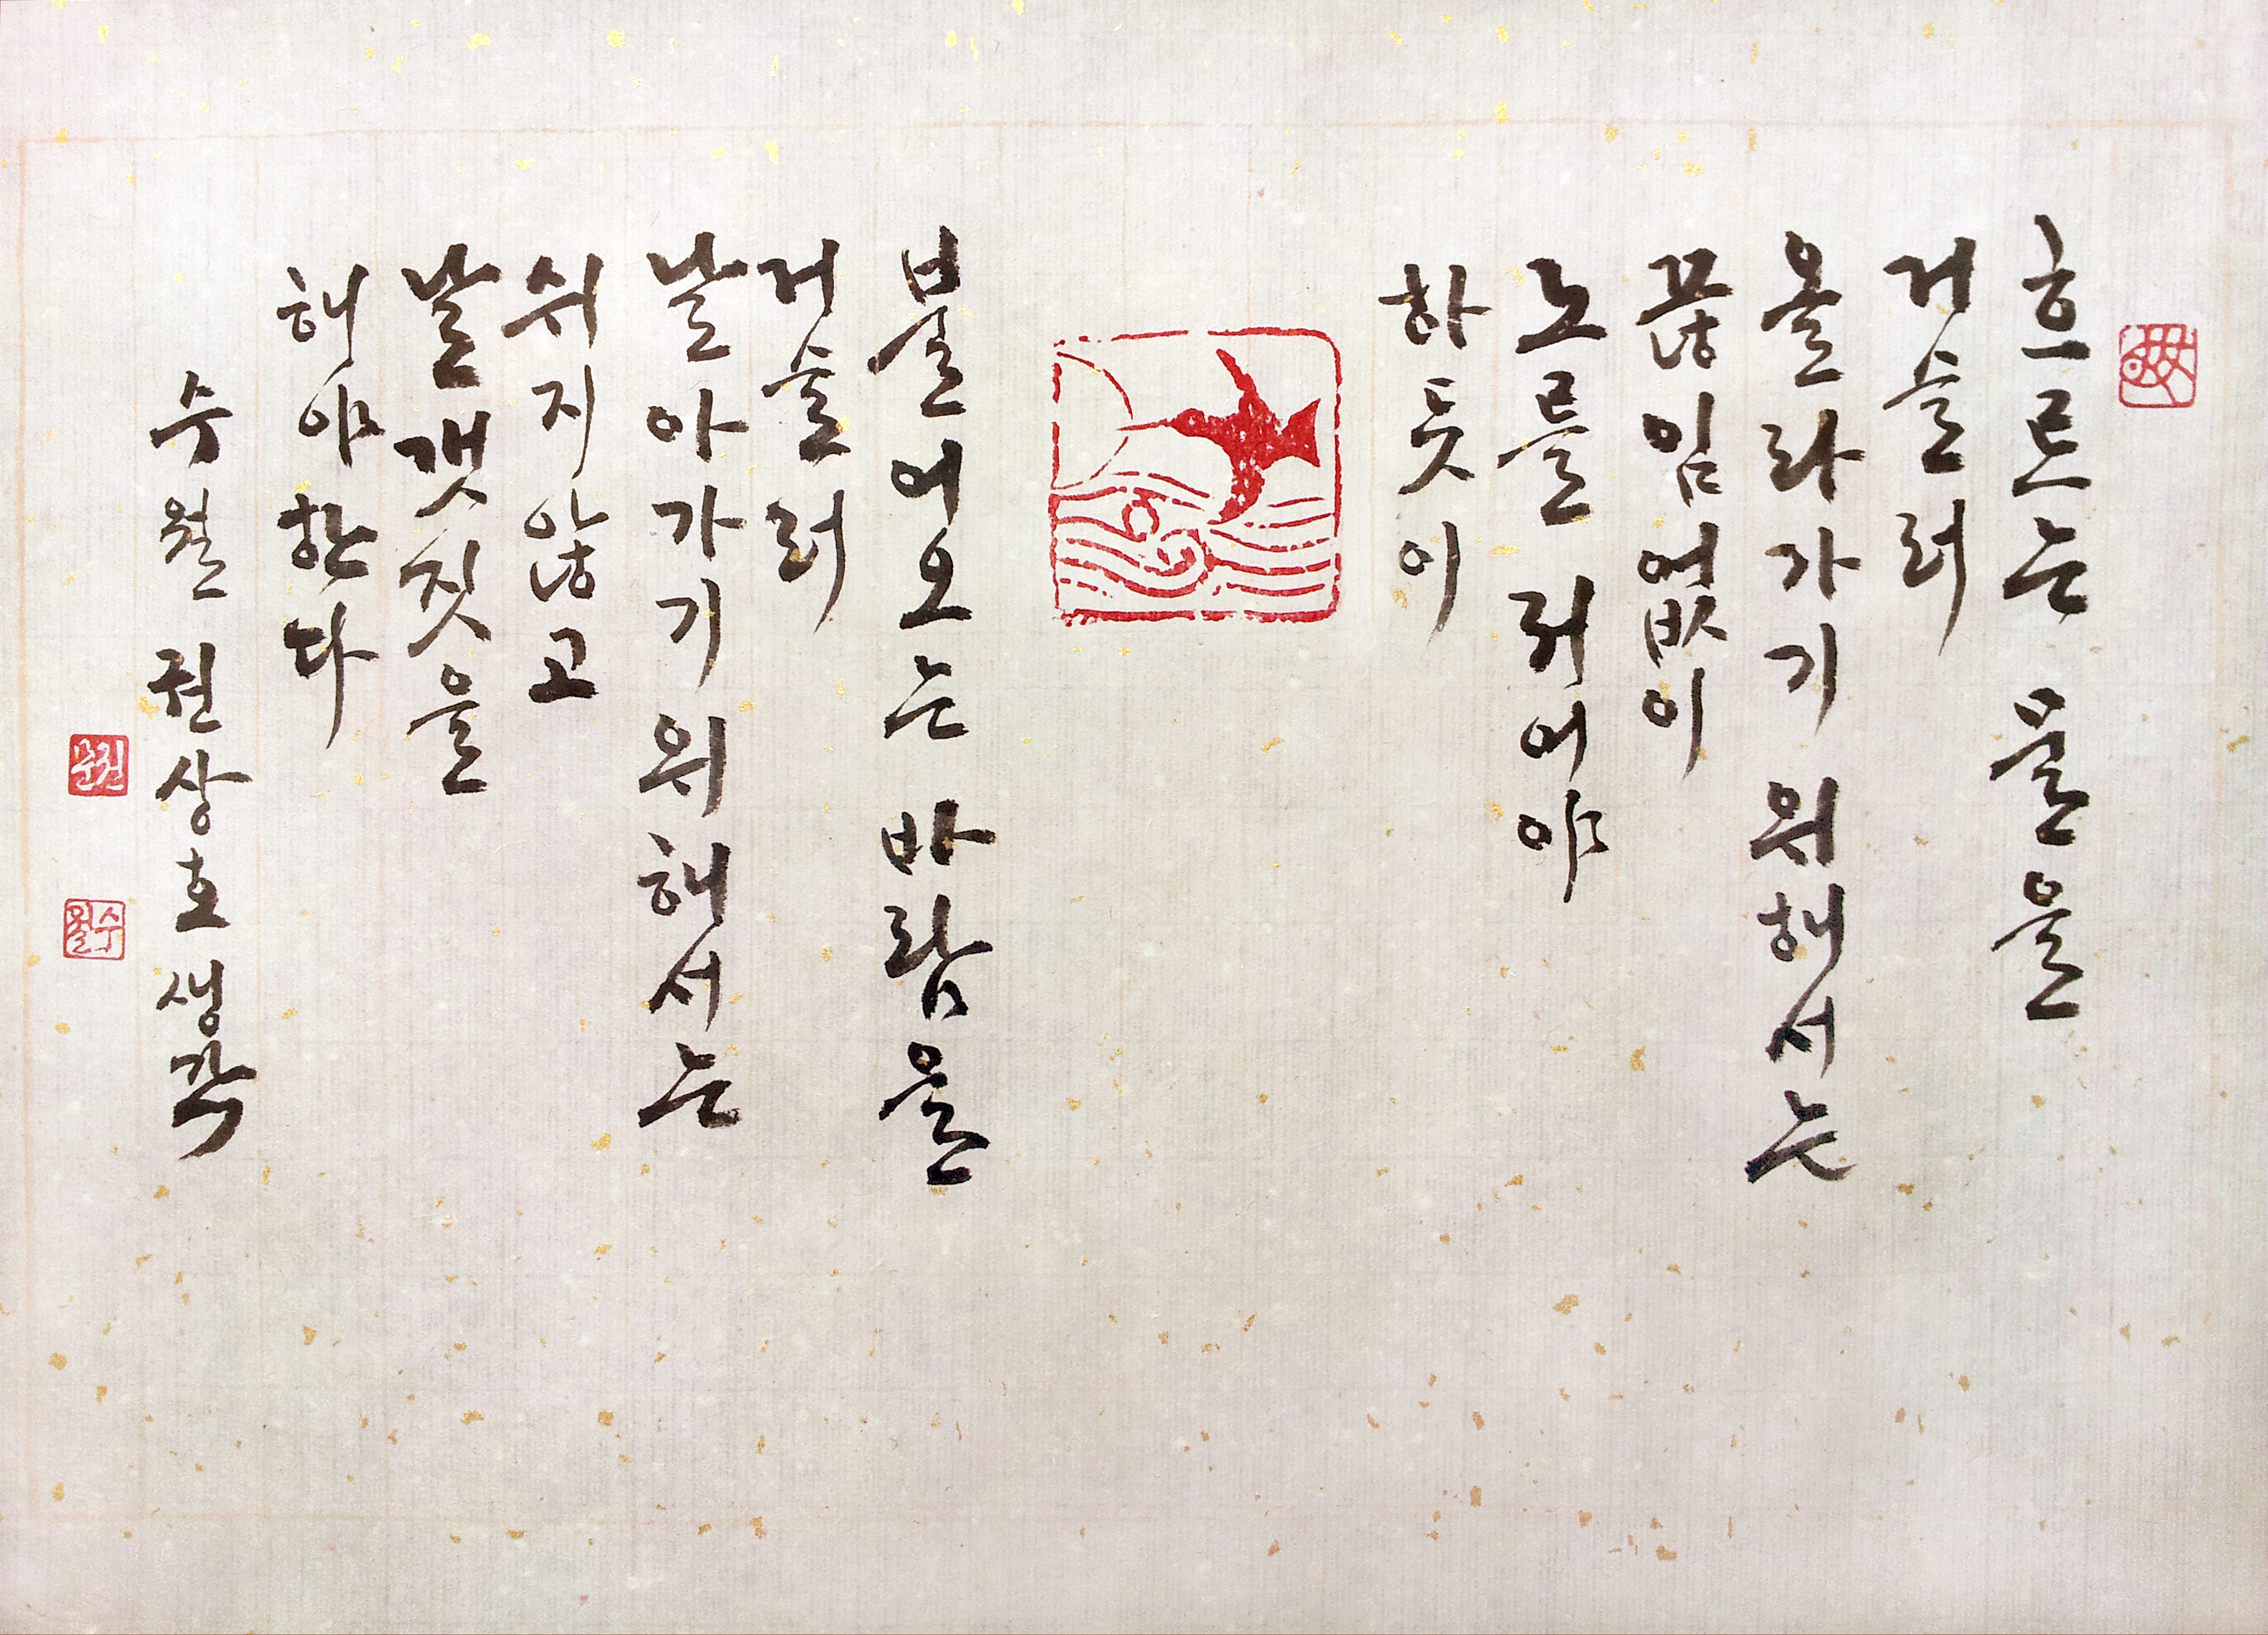 흐르는 물을
거슬러
올라가기 위해서는
끊임없이
노를 저어야
하듯이
불어오는 바람을
거슬러
날아가기 위해서는
쉬지 않고
날갯짓을
해야 한다
수월 권상호 생각
수월